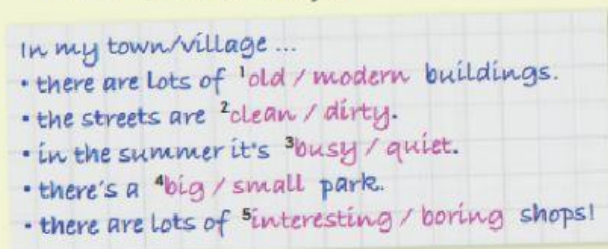 In my town/village ...
• there are lots of ¹old / modern buildings.
• the streets are ²clean / dirty.
• in the summer it's ³busy / quiet.
• there's a ⁴big / small park.
• there are lots of ⁵interesting / boring shops!